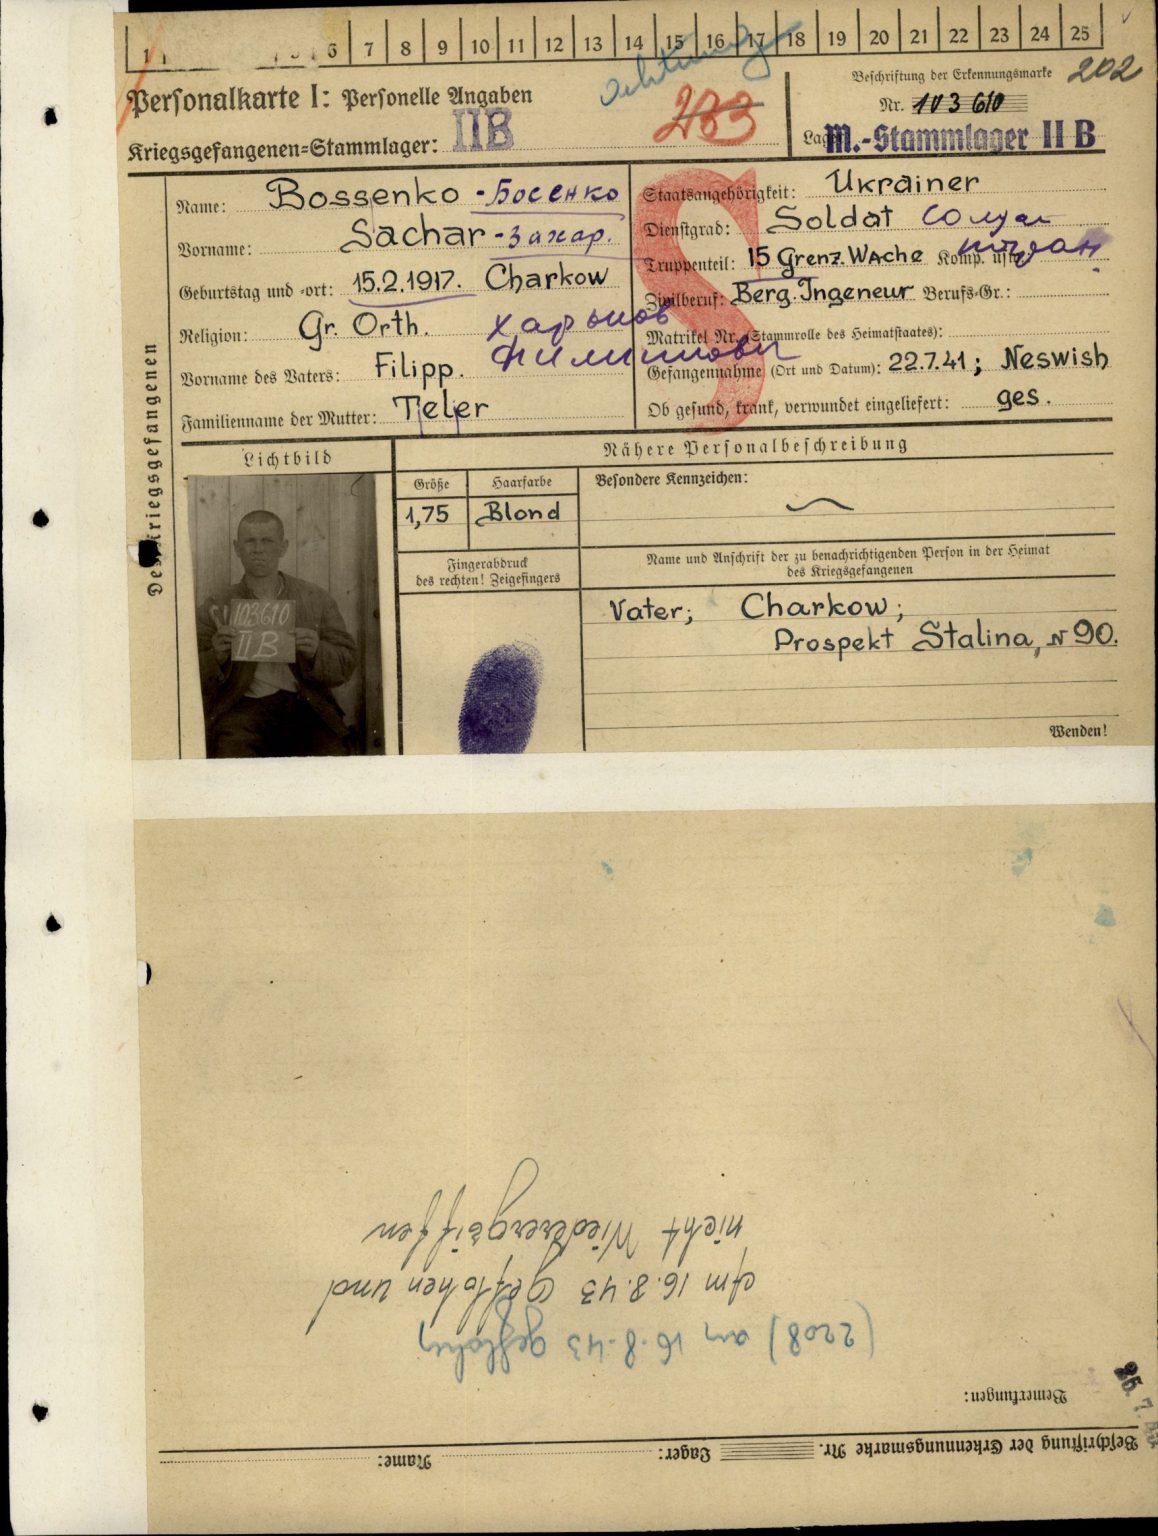 1 5 6 7 8 9 10 11 12 13 14 15 16 17 18 19 20 21 22 23 24 25
Personalkarte I: Personelle Angaben
Achtung
233
Beschriftung der Erkennungsmarke 202
Nr. 103610
Kriegsgefangenen-Stammlager: II B
Lager: M.-Stammlager II B
Des Kriegsgefangenen
Name: Bossenko - Босенко
Vorname: Sachar - Захар.
Geburtstag und -ort: 15.2.1917. Charkow
Харьков
Religion: Gr. Orth.
Vorname des Vaters: Filipp. Филиппович
Familienname der Mutter: Tjeljer
S
Staatsangehörigkeit: Ukrainer
Dienstgrad: Soldat Солдат
Truppenteil: 15 Grenz. Wache Komp. usw.:
Zivilberuf: Berg. Ingeneur Berufs-Gr.:
Matrikel Nr. (Stammrolle des Heimatstaates):
Gefangennahme (Ort und Datum): 22.7.41; Neswish
Ob gesund, krank, verwundet eingeliefert: ges.
Lichtbild
Nähere Personalbeschreibung
Größe Haarfarbe Besondere Kennzeichen:
1,75 Blond
103610
II B
Fingerabdruck
des rechten! Zeigefingers
Name und Anschrift der zu benachrichtigenden Person in der Heimat
des Kriegsgefangenen
Vater; Charkow;
Prospekt Stalina, N 90.
Wenden!
Beschriftung der Erkennungsmarke Nr. Lager: Name:
25.7.
Bemerkungen:
(2208) am 16.8.43 geflohen
Am 16.8.43 Geflohen und
nicht Wiederergriffen